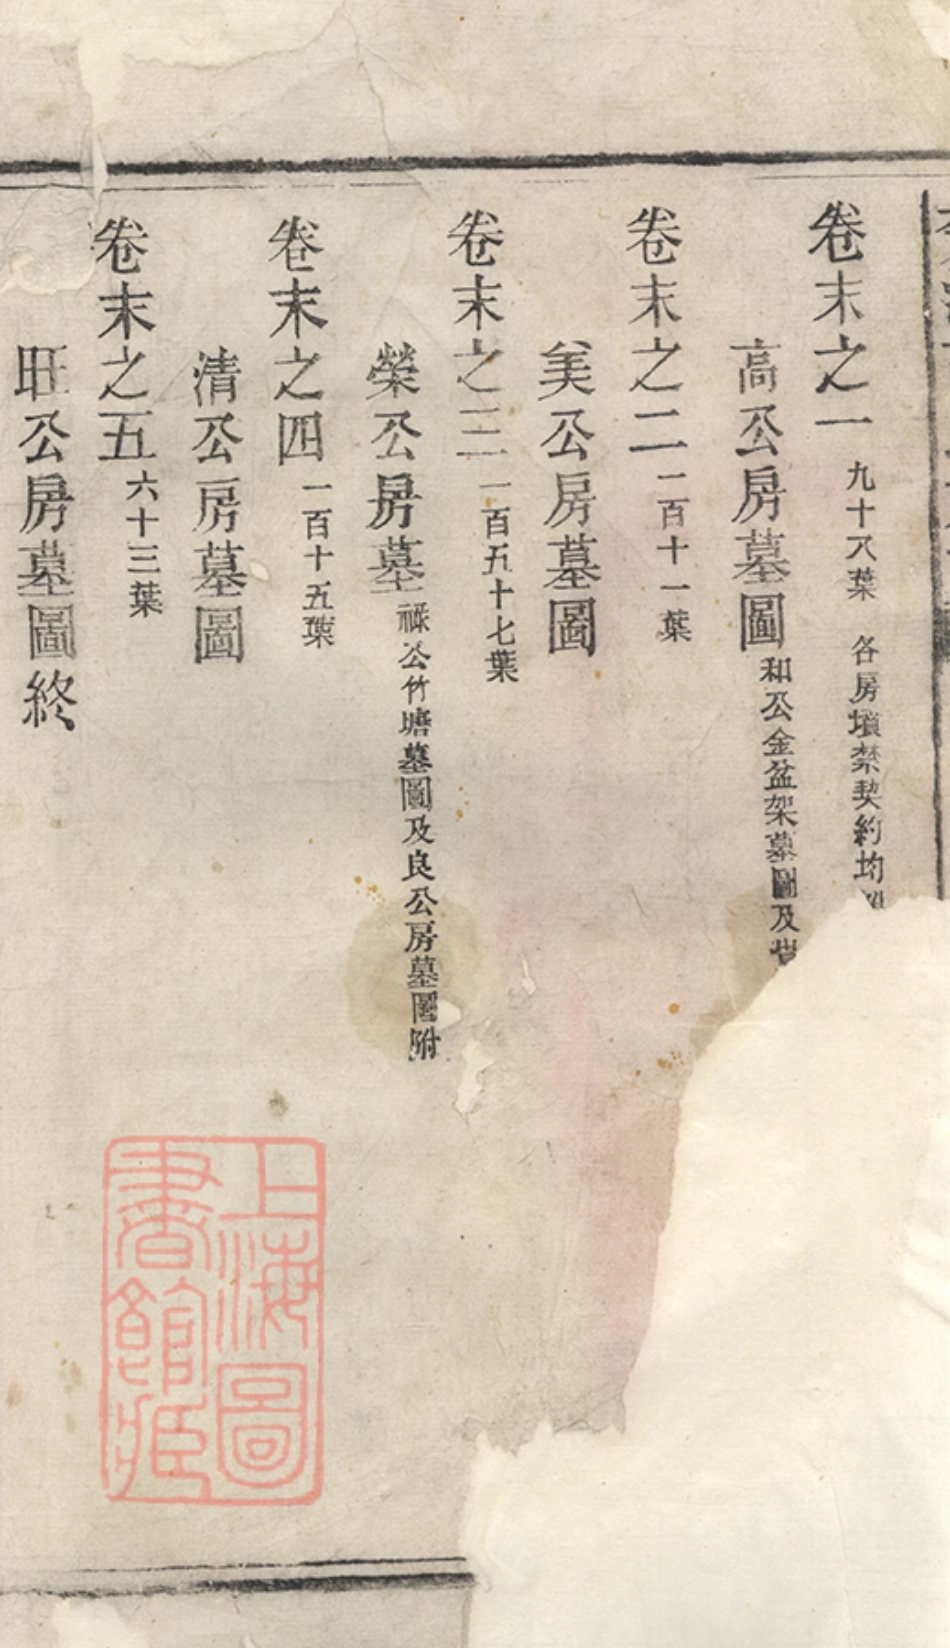 卷末之一 九十八葉 各房墳禁契約均
高公房墓圖 和公金盆架墓圖及
卷末之二 二百十一葉
美公房墓圖
卷末之三 一百五十七葉
榮公房墓 祿公竹塘墓圖及良公房墓圖附
卷末之四 一百十五葉
清公房墓圖
卷末之五 六十三葉
旺公房墓圖終
上海圖書館藏